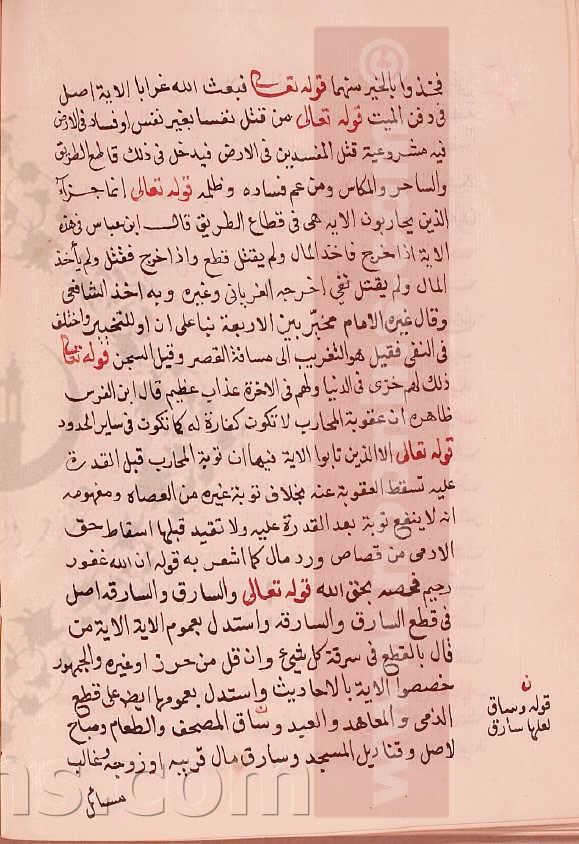 فخذوا بالخير منهما قوله تعالى فبعث الله غرابا الاية اصل
فى دفن الميت قوله تعالى من قتل نفسا بغير نفس او فساد فى الارض
فيه مشروعية قتل المفسدين فى الارض فيدخل فى ذلك قاطع الطريق
والساحر والمكاس ومن عم فساده وظلمه قوله تعالى انما جزاء
الذين يحاربون الاية هى فى قطاع الطريق قال ابن عباس فى هذه
الاية اذا خرج فاخذ المال ولم يقتل قطع واذا خرج فقتل ولم يأخذ
المال ولم يقتل نفى اخرجه الفريانى وغيره وبه اخذ الشافعى
وقال غيره الامام مخير بين الاربعة بنا على ان او للتخيير واختلف
فى النفى فقيل هو التغريب الى مسافة القصر وقيل السجن قوله تعالى
ذلك لهم خزى فى الدنيا ولهم فى الاخرة عذاب عظيم قال ابن الفرس
ظاهره ان عقوبة المحارب لا تكون كفارة له كما تكون فى ساير الحدود
قوله تعالى الا الذين تابوا الاية فيها ان توبة المحارب قبل القدرة
عليه تسقط العقوبة عنه بخلاف توبة غيره من العصاه ومفهومه
انه لا ينفع توبة بعد القدرة عليه ولا تقيد قبلها اسقاط حق
الادمى من قصاص ورد مال كما اشعر به قوله ان الله غفور
رحيم فخصه بحق الله قوله تعالى والسارق والسارقه اصل
فى قطع السارق والسارقه واستدل بعموم الاية الاية من
قال بالقطع فى سرقة كل شيئ وان قل من حرز او غيره والجمهور
خصصوا الاية بالاحاديث واستدل بعمومها ايضا على قطع
الذمى والمعاهد والعبد وساق المصحف والطعام ومباح
لاصل وقناديل المسجد وسارق مال قريبه او زوجه
مسائل
ن
قوله وساق
لعلها سارق